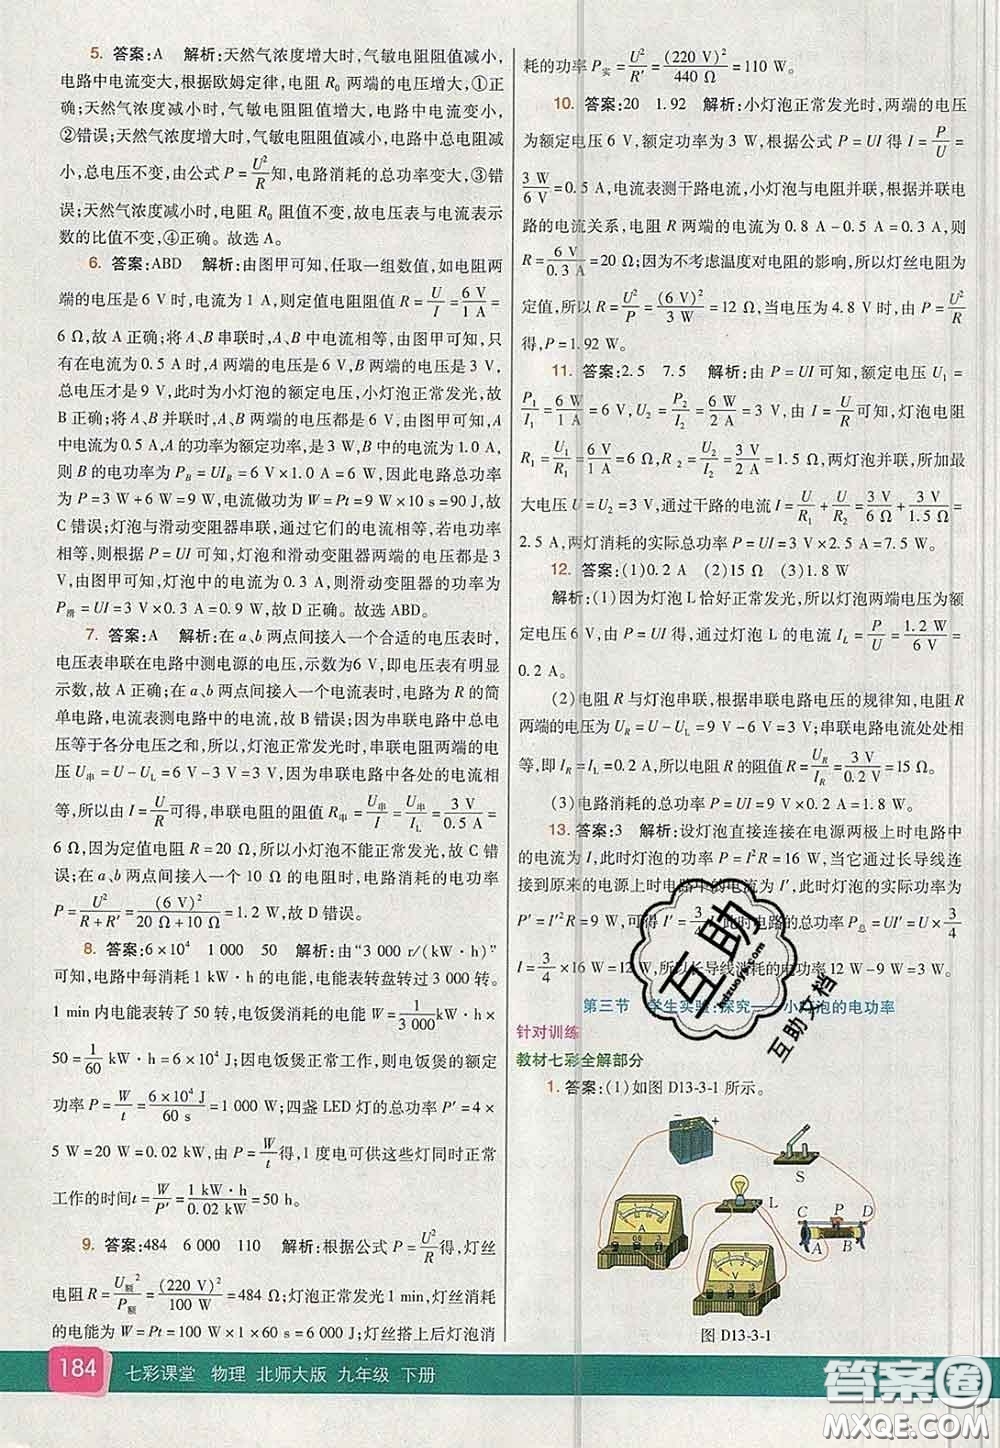 5. 答案:A 解析:天然气浓度增大时,气敏电阻阻值减小,
电路中电流变大,根据欧姆定律,电阻 R₀ 两端的电压增大,①正
确;天然气浓度减小时,气敏电阻阻值增大,电路中电流变小,
②错误;天然气浓度增大时,气敏电阻阻值减小,电路中总电阻减
小,总电压不变,由公式 P=U²/R知,电路消耗的总功率变大,③错
误;天然气浓度减小时,电阻 R₀ 阻值不变,故电压表与电流表示
数的比值不变,④正确。故选 A。
6. 答案:ABD 解析:由图甲可知,任取一组数值,如电阻两
端的电压是 6 V 时,电流为 1 A,则定值电阻阻值 R=U/I=6 V/1 A=
6 Ω,故 A 正确;将 A、B 串联时,A、B 中电流相等,由图甲可知,只
有在电流为 0.5 A 时,A 两端的电压是 6 V,B 两端的电压是 3 V,
总电压才是 9 V,此时为小灯泡的额定电压,小灯泡正常发光,故
B 正确;将 A、B 并联时,A、B 两端的电压都是 6 V,由图甲可知,A
中电流为0.5 A,A 的功率为额定功率,是 3 W,B 中电流为 1.0 A,
则 B 的电功率为 P_B=UI_B=6 V×1.0 A=6 W,因此电路总功率
为 P=3 W+6 W=9 W,电流做功为 W=Pt=9 W×10 s=90 J,故
C 错误;灯泡与滑动变阻器串联,通过它们的电流相等,若电功率
相等,则根据 P=UI 可知,灯泡和滑动变阻器两端的电压也相
等,由图甲可知,灯泡中的电流为 0.3 A,则滑动变阻器的功率为
P滑=UI=3 V×0.3 A=0.9 W,故 D 正确。故选ABD。
7. 答案:A 解析:在 a、b 两点间接入一个合适的电压表时,
电压表串联在电路中测电源的电压,示数为6 V,即电压表有明显
示数,故 A 正确;在 a、b 两点间接入一个电流表时,电路为 R 的简
单电路,电流表测电路中的电流,故 B 错误;因为串联电路中总电
压等于各分电压之和,所以,灯泡正常发光时,串联电阻两端的电
压 U串=U−U_L=6 V−3 V=3 V,串联电路中各处的电流相
等,所以由 I=U/R可得,串联电阻的阻值 R串=U串/I=U串/I_L=3 V/0.5 A=
6 Ω,因为定值电阻为 20 Ω,所以小灯泡不能正常发光,故 C 错误;
在 a、b 两点间接入一个 10 Ω 的电阻时,电路消耗的电功率
P=U²/(R+R′)=(6 V)²/(20 Ω+10 Ω)=1.2 W,故 D 错误。
8. 答案:6×10⁴ 1 000 50 解析:由“3 000 r/(kW·h)”
可知,电路中每消耗 1 kW·h 的电能,电能表转盘转过 3 000 转。
1 min 内电能表转了 50 转,电饭煲消耗的电能 W=1/3 000 kW·h×
50=1/60 kW·h=6×10⁴ J;因电饭煲正常工作,则电饭煲的额定
功率 P=W/t=6×10⁴ J/60 s=1 000 W;四盏 LED 灯的总功率 P′=4×
5 W=20 W=0.02 kW,由 P=W/t可得,1 度电可供这些灯同时正常
工作的时间t=W/P′=1 kW·h/0.02 kW=50 h。
9. 答案:484 6 000 110 解析:根据公式 P=U²/R得,灯丝
电阻 R=U额²/P额=(220 V)²/100 W=484 Ω;灯泡正常发光 1 min,灯丝消耗
的电能为 W=Pt=100 W×1×60 s=6 000 J;灯丝搭上后灯泡消
耗的功率 P实=U²/R′=(220 V)²/440 Ω=110 W。
10. 答案:20 1.92 解析:小灯泡正常发光时,两端的电压
为额定电压 6 V,额定功率为 3 W,根据公式 P=UI 得 I=P/U=
3 W/6 V=0.5 A,电流表测干路电流,小灯泡与电阻并联,根据并联电
路的电流关系,电阻 R 两端的电流为 0.8 A−0.5 A=0.3 A,电阻
R=6 V/0.3 A=20 Ω;因为不考虑温度对电阻的影响,所以灯丝电阻为
定值,所以 R=U²/P=(6 V)²/3 W=12 Ω,当电压为 4.8 V 时,由 P=U²/R
得,P=1.92 W。
11. 答案:2.5 7.5 解析:由 P=UI 可知,额定电压 U₁=
P₁/I₁=6 W/1 A=6 V,U₂=P₂/I₂=6 W/2 A=3 V,由 I=U/R可知,灯泡电阻
R₁=U₁/R₁=6 V/1 A=6 Ω,R₂=U₂/I₂=3 V/2 A=1.5 Ω,两灯泡并联,所加最
大电压 U=U₂=3 V,通过干路的电流 I=U/R₁+U/R₂=3 V/6 Ω+3 V/1.5 Ω=
2.5 A,两灯消耗的实际总功率 P=UI=3 V×2.5 A=7.5 W。
12. 答案:(1)0.2 A (2)15 Ω (3)1.8 W
解析:(1)因为灯泡 L 恰好正常发光,所以灯泡两端电压为额
定电压 6 V,由 P=UI 得,通过灯泡 L 的电流 I_L=P/U=1.2 W/6 V=
0.2 A。
(2)电阻 R 与灯泡串联,根据串联电路电压的规律知,电阻 R
两端的电压为 U_R=U−U_L=9 V−6 V=3 V;串联电路电流处处相
等,即 I_R=I_L=0.2 A,所以电阻 R 的阻值 R=U_R/I_R=3 V/0.2 V=15 Ω。
(3)电路消耗的总功率 P=UI=9 V×0.2 A=1.8 W。
13. 答案:3 解析:设灯泡直接连接在电源两极上时电路中
的电流为 I,此时灯泡的功率 P=I²R=16 W,当它通过长导线连
接到原来的电源上时电路中的电流为 I′,此时灯泡的实际功率
P′=I′²R=9 W,可得 I′=3/4 I,此时电路的总功率 P总=UI′=U×3/4
I=3/4×16 W=12 W,所以长导线消耗的电功率 P=12 W−9 W=3 W。
第三节 学生实验:探究——小灯泡的电功率
针对训练
教材七彩全解部分
1. 答案:(1)如图 D13-3-1 所示。
− +
S
L
C P D
A B
A
V
图 D13-3-1
互助
kdzuoye.com
互助文档
184 七彩课堂 物理 北师大版 九年级 下册
答案圈
MXQE.COM